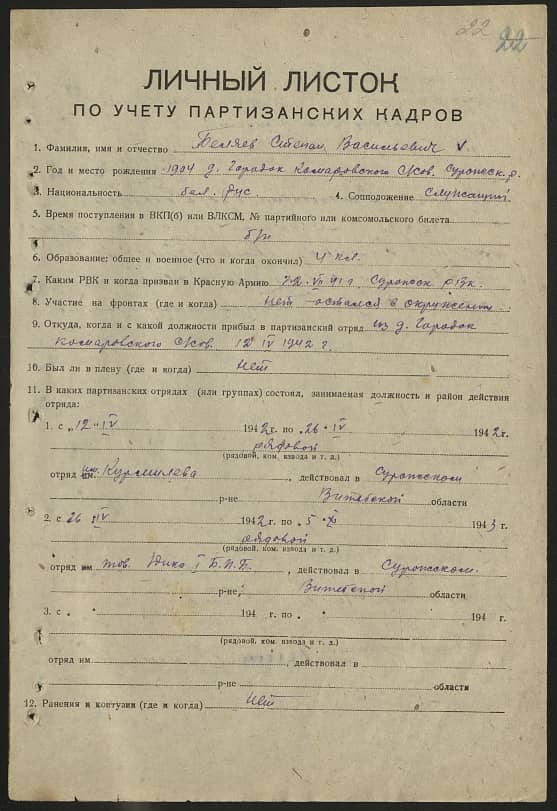 22 22
ЛИЧНЫЙ ЛИСТОК
ПО УЧЕТУ ПАРТИЗАНСКИХ КАДРОВ
1. Фамилия, имя и отчество Беляев Степан Васильевич v.
2. Год и место рождения 1904 д. Городок Комаровского с/сов. Суражск. р.
3. Национальность бел. рус. 4. Соцположение служащий.
5. Время поступления в ВКП(б) или ВЛКСМ, № партийного или комсомольского билета
б/п
6. Образование: общее и военное (что и когда окончил) 4 кл.
7. Каким РВК и когда призван в Красную Армию VII Суражск РВК.
8. Участие на фронтах (где и когда) Нет остался в окружении.
9. Откуда, когда и с какой должности прибыл в партизанский отряд из д. Городок
Комаровского с/сов. 12 IV 1942 г.
10. Был ли в плену (где и когда) Нет
11. В каких партизанских отрядах (или группах) состоял, занимаемая должность и район действия
отряда:
1. с „12 " IV 1942 г. по „26 " IV 1942 г.
рядовой
(рядовой, ком. взвода и т. д.)
отряд им. Курмилева, действовал в Суражском
р-не, Витебской области
2. с 26 " IV 1942 г. по „5 " XI 1943 г.
рядовой
(рядовой, ком. взвода и т. д.)
отряд им тов. I Б.П.Б., действовал в Суражском.
р-не, Витебской области
3. с „ " 194 г. по „ " 194 г.
(рядовой, ком. взвода и т. д.)
отряд им , действовал в
р-не области
12. Ранения и контузии (где и когда) Нет